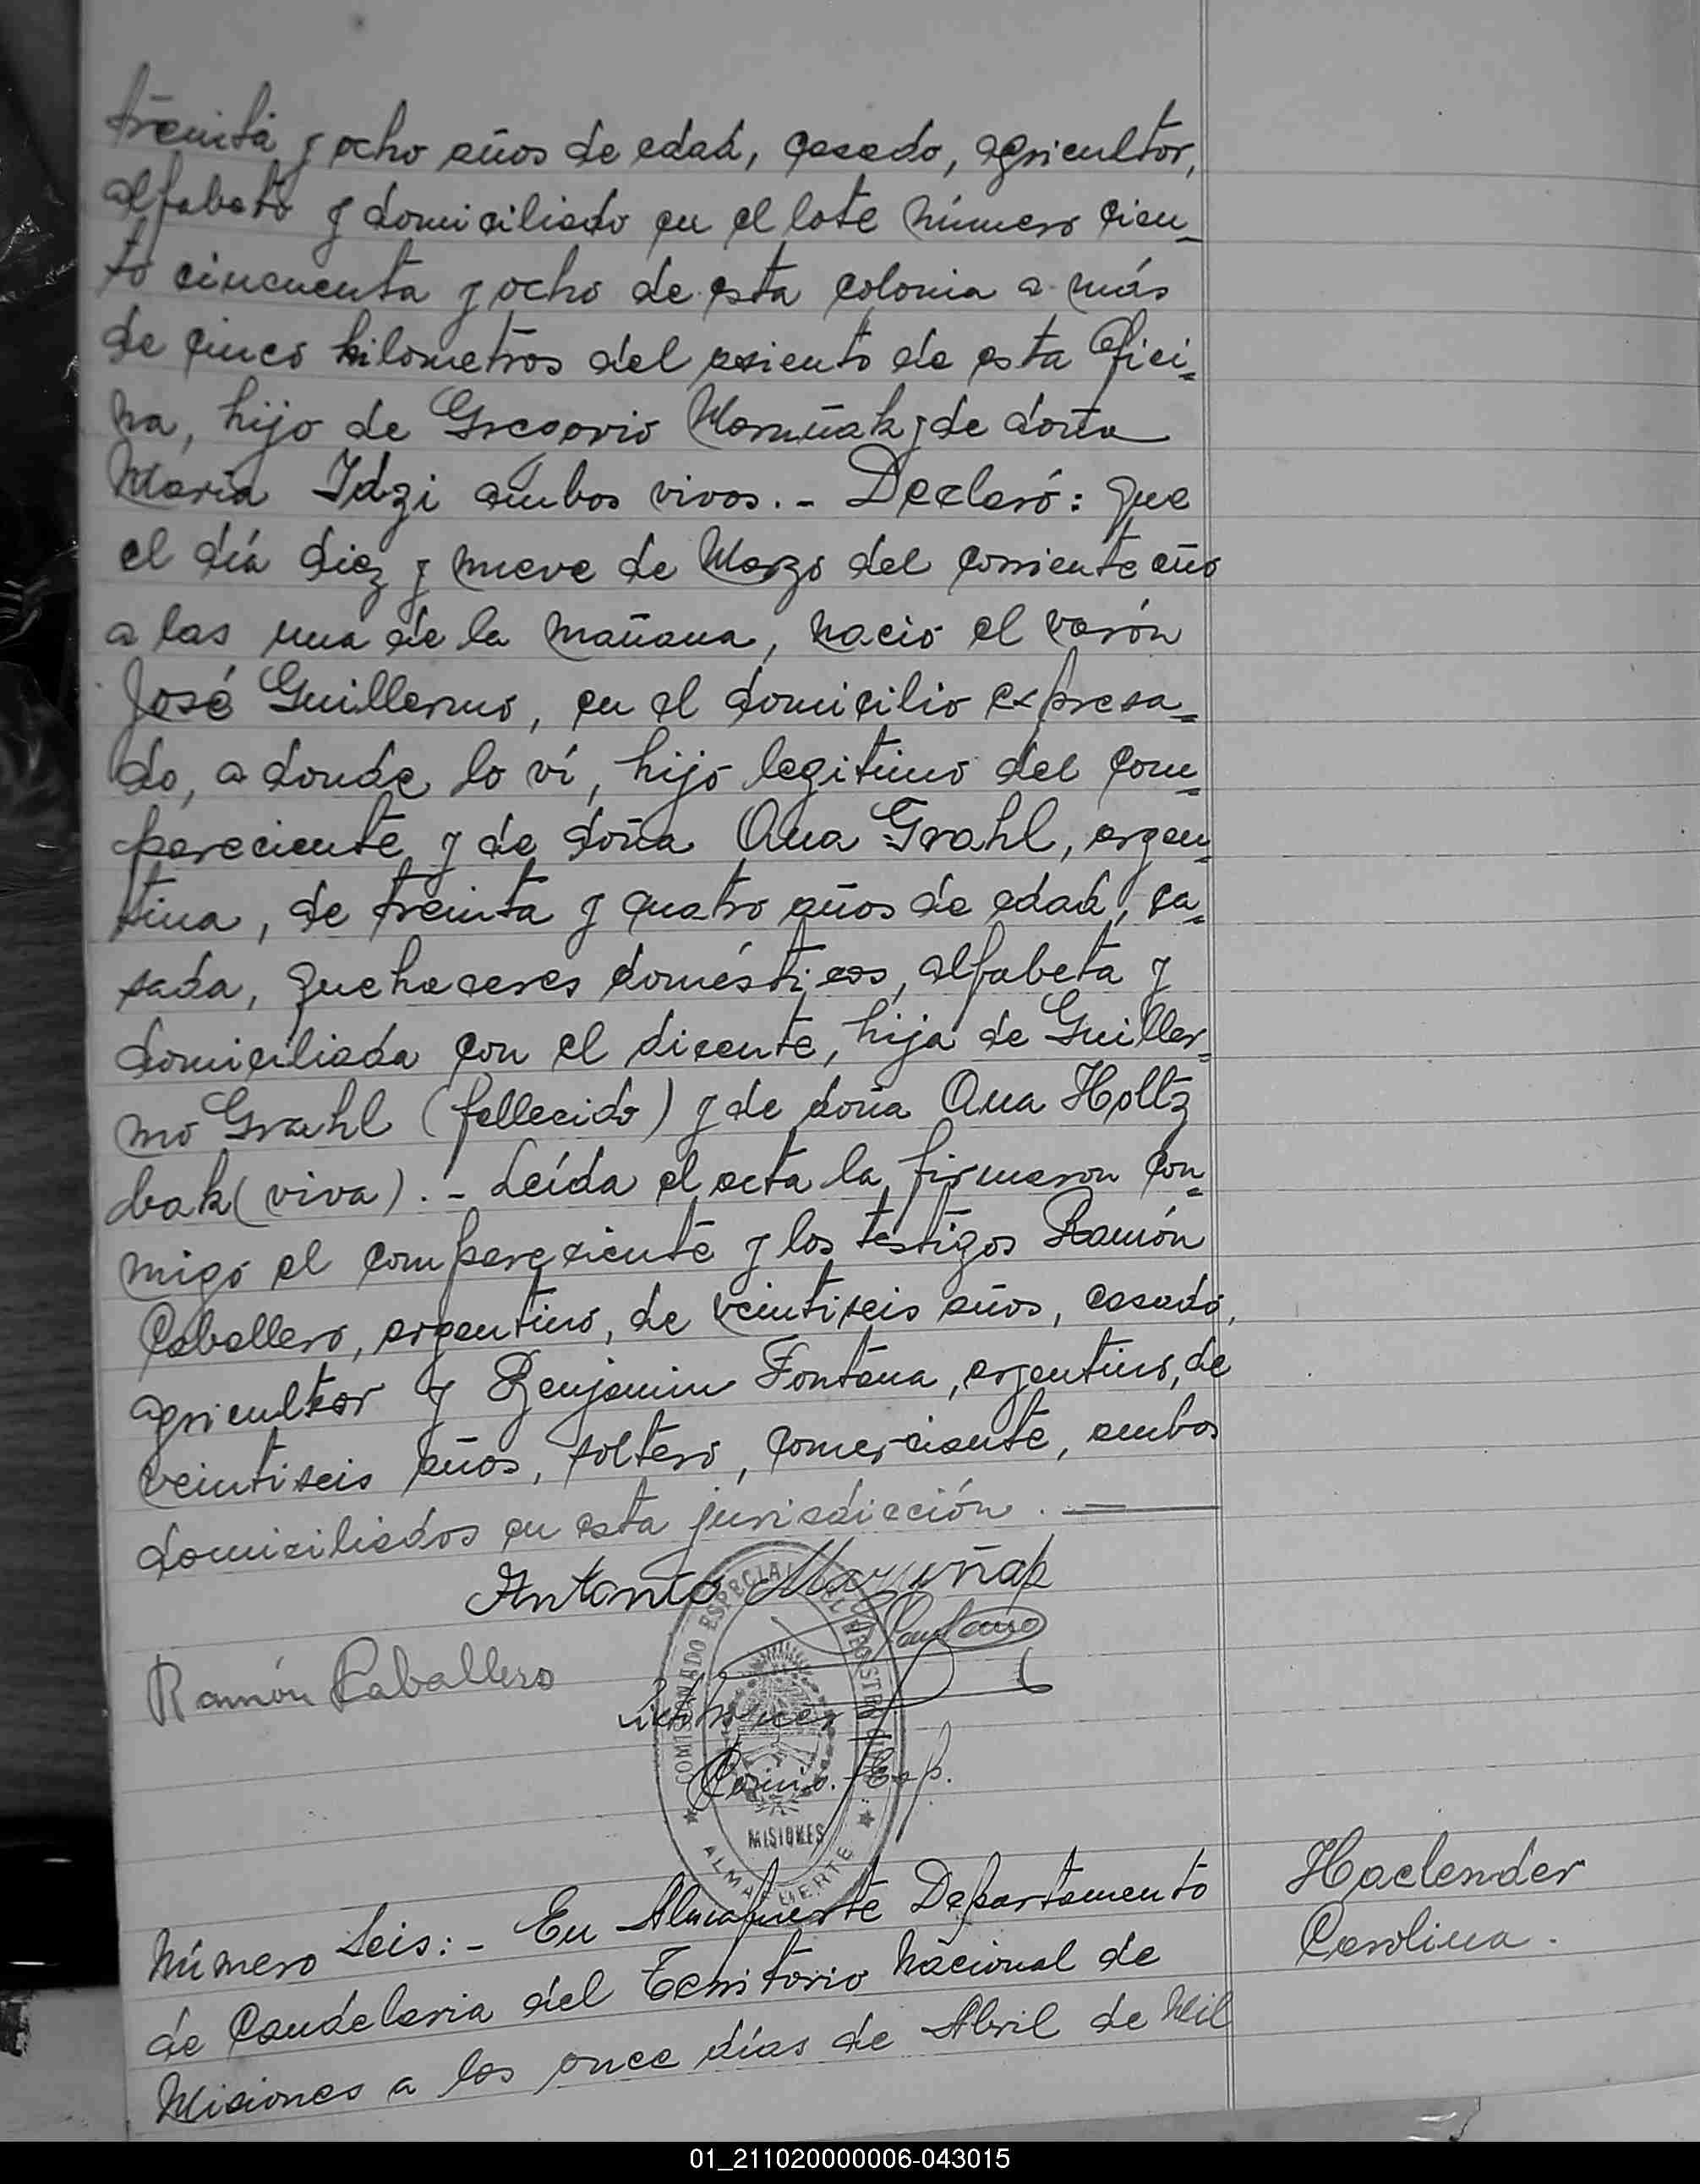 treinta y ocho años de edad, casado, agricultor,
alfabeto y domiciliado en el lote número cien-
to cincuenta y ocho de esta colonia a más
de cinco kilometros del asiento de esta Ofici-
na, hijo de Gregorio Maruñak y de doña
María Idzi ambos vivos.- Declaró: Que
el día diez y nueve de Marzo del corriente año
a las una de la mañana, nació el varón
José Guillermo, en el domicilio expresa-
do, a donde lo ví, hijo legitimo del com-
pareciente y de doña Ana Grahl, argen-
tina, de treinta y cuatro años de edad, ca-
sada, quehaceres domésticos, alfabeta y
domiciliada con el dicente, hija de Guiller-
mo Grahl (fallecido) y de doña Ana Holtz
bak (viva).- Leída el acta la firmaron con-
migo el compareciente y los testigos Ramón
Caballero, argentino, de veintiseis años, casado,
agricultor y Benjamin Fontana, argentino, de
veintiseis años, soltero, comerciante, ambos
domiciliados en esta jurisdicción.
Antonio Maruñak
Ramón Caballero
Comis. Esp.
COMISIONADO ESPECIAL DEL REGISTRO CIVIL
MISIONES
ALMAFUERTE
Número Seis:- En Almafuerte Departamento
de Candelaria del Territorio Nacional de
Misiones a los once días de Abril de Mil
Haclender
Carolina.
01_211020000006-043015